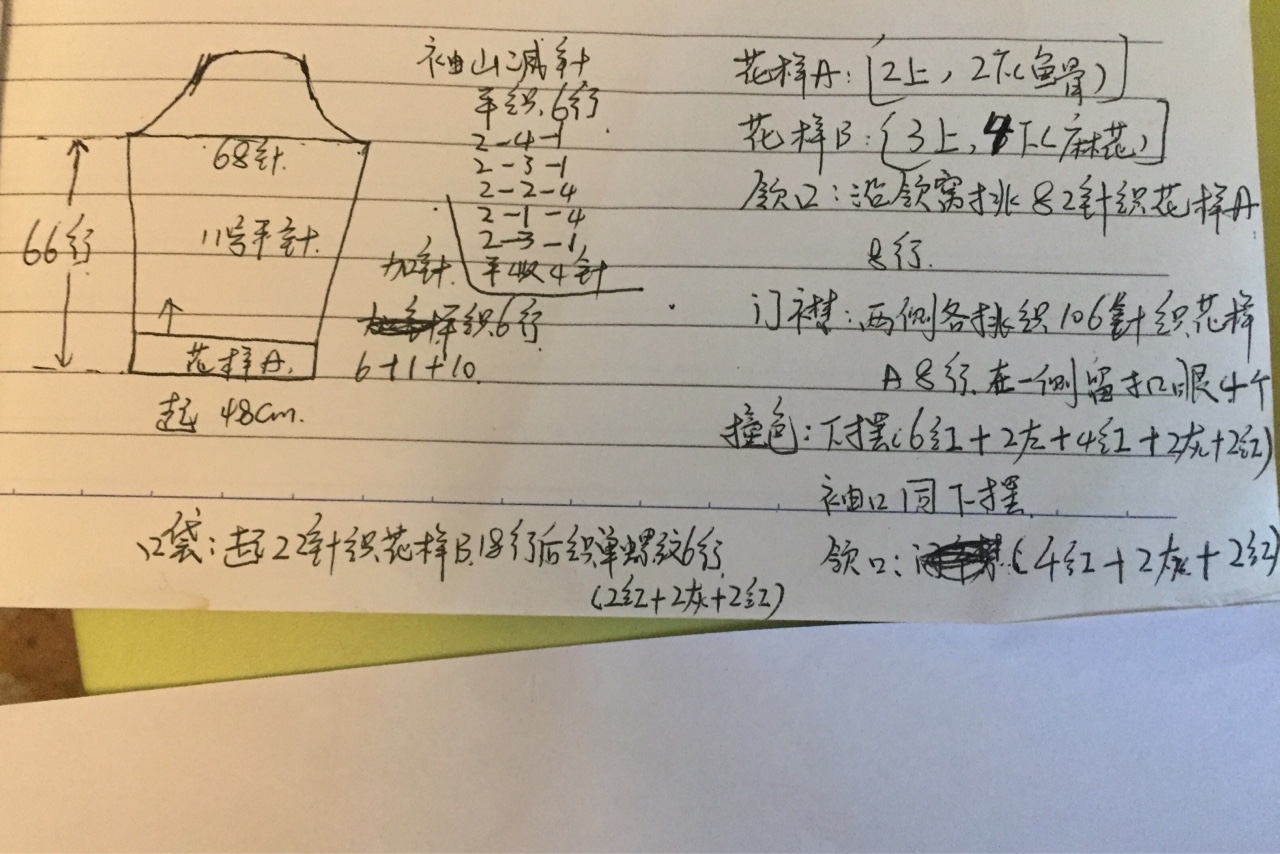 68针
66行
11号平针
花样A
起 48cm.
袖山减针
平织6行
2-4-1
2-3-1
2-2-4
2-1-4
2-3-1
平收4针
加针
平织6行
6+1+10
花样A:[2上,2下(鱼骨)]
花样B:[3上,4下(麻花)]
领口:沿领窝挑82针织花样A
8行.
门襟:两侧各挑织106针织花样
A8行.在一侧留扣眼4个
撞色:下摆(6红+2灰+4红+2灰+2红)
袖口同下摆
领口:(4红+2灰+2红)
口袋:起22针织花样B.18行后织单螺纹6行
(2红+2灰+2红)